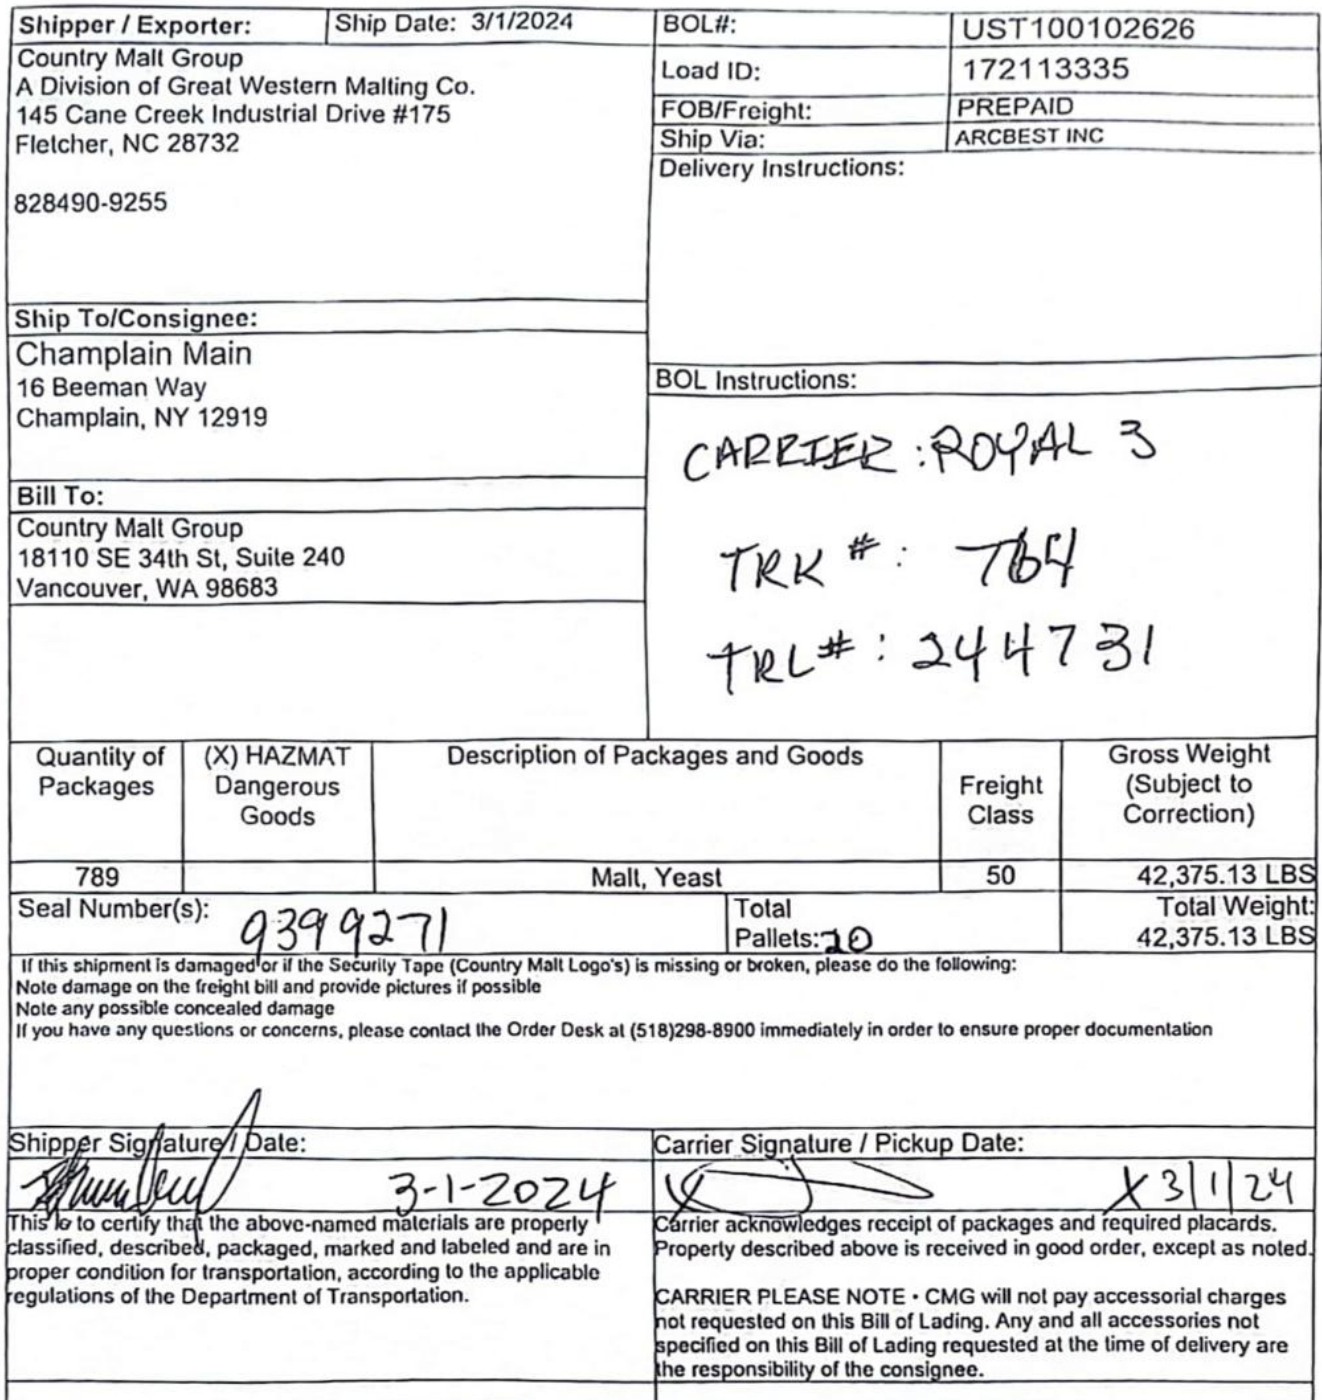 Shipper / Exporter: Ship Date: 3/1/2024
Country Malt Group
A Division of Great Western Malting Co.
145 Cane Creek Industrial Drive #175
Fletcher, NC 28732
828490-9255
BOL#: UST100102626
Load ID: 172113335
FOB/Freight: PREPAID
Ship Via: ARCBEST INC
Delivery Instructions:
Ship To/Consignee:
Champlain Main
16 Beeman Way
Champlain, NY 12919
Bill To:
Country Malt Group
18110 SE 34th St, Suite 240
Vancouver, WA 98683
BOL Instructions:
CARRIER: ROYAL 3
TRK #: 764
TRL#: 244731
Quantity of
Packages
(X) HAZMAT
Dangerous
Goods
Description of Packages and Goods
Freight
Class
Gross Weight
(Subject to
Correction)
789 Malt, Yeast 50 42,375.13 LBS
Seal Number(s): 9399271
Total
Pallets: 20
Total Weight:
42,375.13 LBS
If this shipment is damaged or if the Security Tape (Country Malt Logo's) is missing or broken, please do the following:
Note damage on the freight bill and provide pictures if possible
Note any possible concealed damage
If you have any questions or concerns, please contact the Order Desk at (518)298-8900 immediately in order to ensure proper documentation
Shipper Signature / Date:
3-1-2024
This is to certify that the above-named materials are properly
classified, described, packaged, marked and labeled and are in
proper condition for transportation, according to the applicable
regulations of the Department of Transportation.
Carrier Signature / Pickup Date:
X X 3/1/24
Carrier acknowledges receipt of packages and required placards.
Property described above is received in good order, except as noted.
CARRIER PLEASE NOTE • CMG will not pay accessorial charges
not requested on this Bill of Lading. Any and all accessories not
specified on this Bill of Lading requested at the time of delivery are
the responsibility of the consignee.